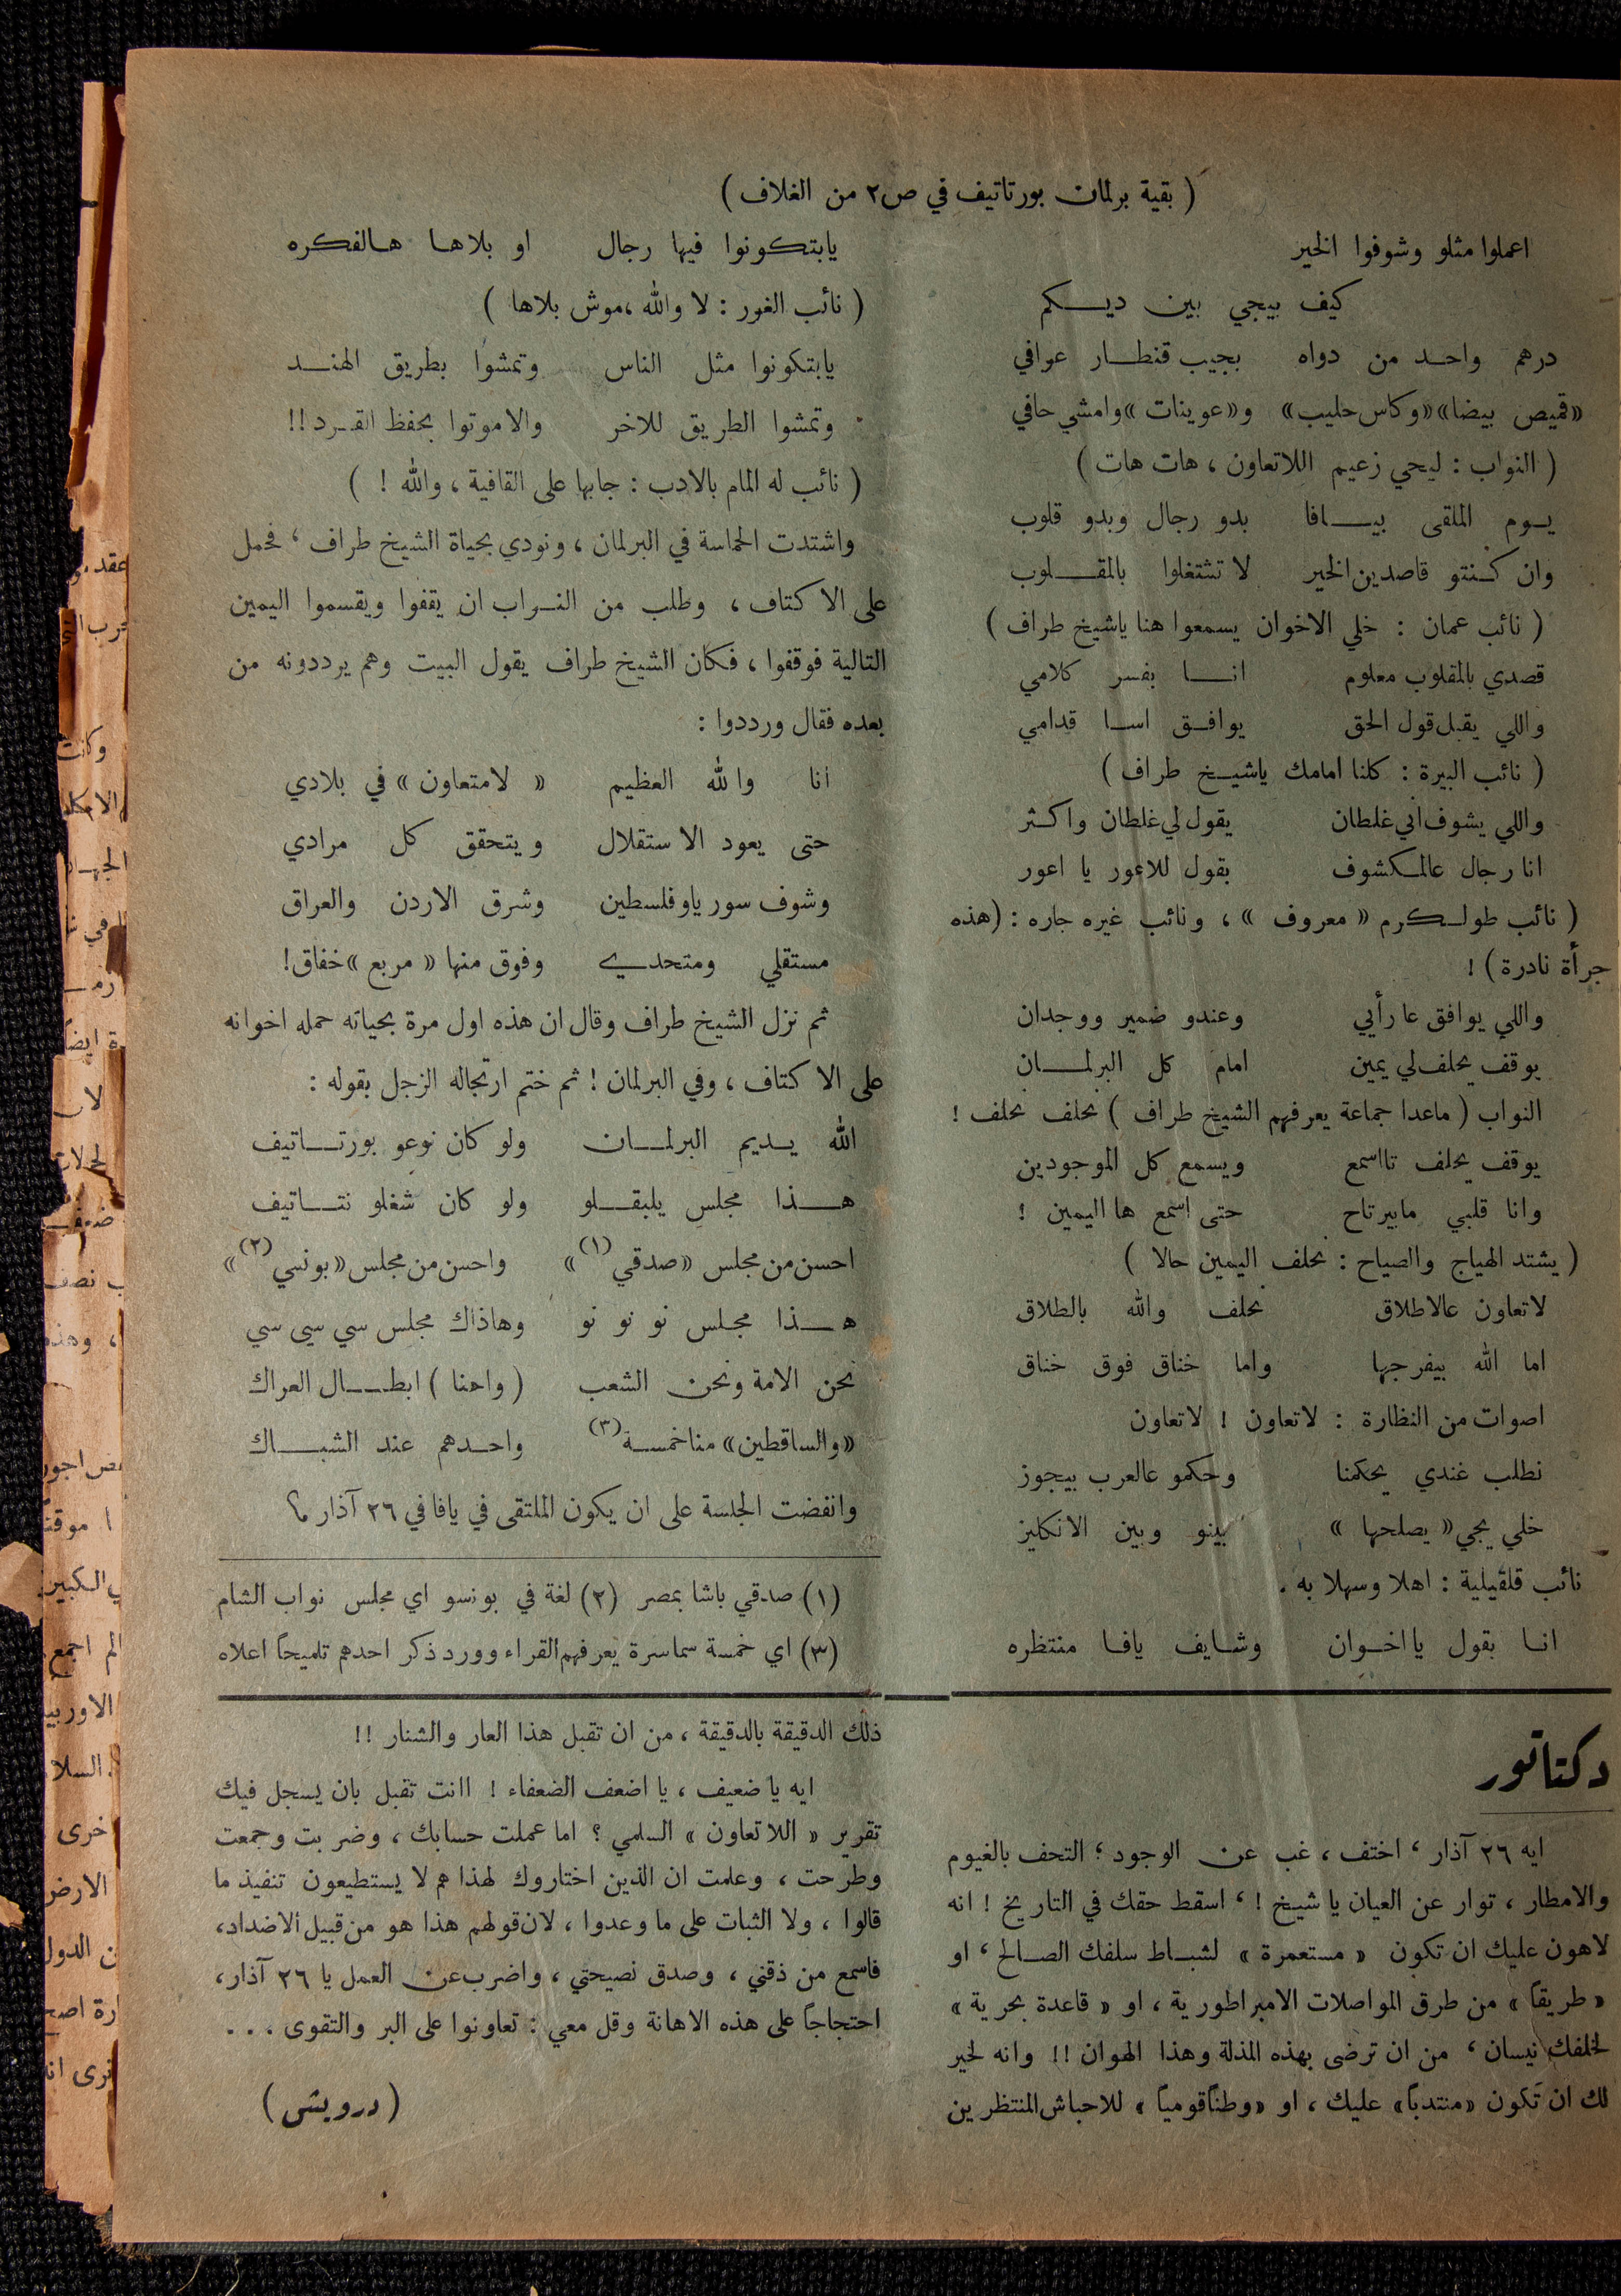 ( بقية برلمان بورتاتيف في ص٢ من الغلاف )
اعملوا مثلو وشوفوا الخير
كيف بيجي بين ديكم
درهم واحد من دواه بجيب قنطار عوافي
«قميص بيضا» «وكاس حليب» و«عوينات» وامشي حافي
( النواب : ليحي زعيم اللاتعاون ، هات هات )
يوم الملقى بيافا بدو رجال وبدو قلوب
وان كنتو قاصدين الخير لا تشتغلوا بالمقلوب
( نائب عمان : خلي الاخوان يسمعوا هنا ياشيخ طراف )
قصدي بالمقلوب معلوم انا بفسر كلامي
واللي يقبل قول الحق يوافق اسا قدامي
( نائب البيرة : كلنا امامك ياشيخ طراف )
واللي يشوف اني غلطان يقول لي غلطان واكثر
انا رجال عالمكشوف بقول للاعور يا اعور
( نائب طولكرم « معروف » ، ونائب غيره جاره : (هذه
جرأة نادرة ) !
واللي يوافق عا رأيي وعندو ضمير ووجدان
يوقف يحلف لي يمين امام كل البرلمان
النواب ( ماعدا جماعة يعرفهم الشيخ طراف ) نحلف نحلف !
يوقف يحلف تااسمع ويسمع كل الموجودين
وانا قلبي مابيرتاح حتى اسمع ها اليمين !
( يشتد الهياج والصياح : نحلف اليمين حالا )
لاتعاون عالاطلاق نحلف والله بالطلاق
اما الله بيفرجها واما خناق فوق خناق
اصوات من النظارة : لاتعاون ! لاتعاون
نطلب غندي يحكمنا وحكمو عالعرب بيجوز
خلي يجي « يصلحها » بينو وبين الانكليز
نائب قلقيلية : اهلا وسهلا به .
انا بقول يا اخوان وشايف يافا منتظره
يابتكونوا فيها رجال او بلاها هالفكره
( نائب الغور : لا والله ،موش بلاها )
يابتكونوا مثل الناس وتمشوا بطريق الهند
وتمشوا الطريق للاخر والا موتوا بحفظ القرد !!
( نائب له المام بالادب : جابها على القافية ، والله ! )
واشتدت الحماسة في البرلمان ، ونودي بحياة الشيخ طراف ، فحمل
على الاكتاف ، وطلب من النواب ان يقفوا ويقسموا اليمين
التالية فوقفوا ، فكان الشيخ طراف يقول البيت وهم يرددونه من
بعده فقال ورددوا :
انا والله العظيم « لامتعاون » في بلادي
حتى يعود الاستقلال ويتحقق كل مرادي
وشوف سوريا وفلسطين وشرق الاردن والعراق
مستقلي ومتحدي وفوق منها « مربع » خفاق!
ثم نزل الشيخ طراف وقال ان هذه اول مرة بحياته حمله اخوانه
على الاكتاف ، وفي البرلمان ! ثم ختم ارتجاله الزجل بقوله :
الله يديم البرلمان ولو كان نوعو بورتاتيف
هذا مجلس يلبقلو ولو كان شغلو نتاتيف
احسن من مجلس «صدقي (١)» واحسن من مجلس «بونسي (٢)»
هذا مجلس نو نو نو وهاذاك مجلس سي سي سي
نحن الامة ونحن الشعب ( واحنا ) ابطال العراك
«والساقطين» منا خمسة (٣) واحدهم عند الشباك
وانفضت الجلسة على ان يكون الملتقى في يافا في ٢٦ آذار م؟
(١) صدقي باشا بمصر (٢) لغة في بونسو اي مجلس نواب الشام
(٣) اي خمسة سماسرة يعرفهم القراء وورد ذكر احدهم تلميحاً اعلاه
دكتاتور
ايه ٢٦ آذار ، اختف ، غب عن الوجود ؛ التحف بالغيوم
والامطار ، توار عن العيان يا شيخ ! ، اسقط حقك في التاريخ ! انه
لاهون عليك ان تكون « مستعمرة » لشباط سلفك الصالح ، او
« طريقاً » من طرق المواصلات الامبراطورية ، او « قاعدة بحرية »
لخلفك نيسان ، من ان ترضى بهذه المذلة وهذا الهوان !! وانه لخير
لك ان تكون «منتدباً» عليك ، او «وطناً قومياً» للاحباش المنتظرين
ذلك الدقيقة بالدقيقة ، من ان تقبل هذا العار والشنار !!
ايه يا ضعيف ، يا اضعف الضعفاء ! اانت تقبل بان يسجل فيك
تقرير « اللاتعاون » السلمي ؟ اما عملت حسابك ، وضربت وجمعت
وطرحت ، وعلمت ان الذين اختاروك لهذا هم لا يستطيعون تنفيذ ما
قالوا ، ولا الثبات على ما وعدوا ، لان قولهم هذا هو من قبيل الاضداد،
فاسمع من ذقني ، وصدق نصيحتي ، واضرب عن العمل يا ٢٦ آذار،
احتجاجاً على هذه الاهانة وقل معي : تعاونوا على البر والتقوى . . .
(درويش)